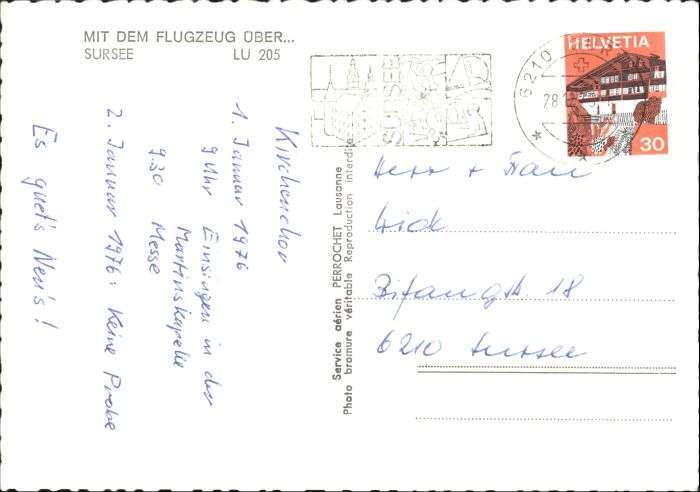 MIT DEM FLUGZEUG ÜBER...
SURSEE LU 205
SURSEE
6210
28
HELVETIA
30
Kirchenchor
1. Januar 1976
9 Uhr Einsingen in der
Martinskapelle
9.30 Messe
2. Januar 1976: Keine Probe
Es guet's Neu's!
Service aérien PERROCHET Lausanne
Photo bromure véritable Reproduction interdite
Herr + Frau
Wick
Bifangstr 18
6210 Sursee